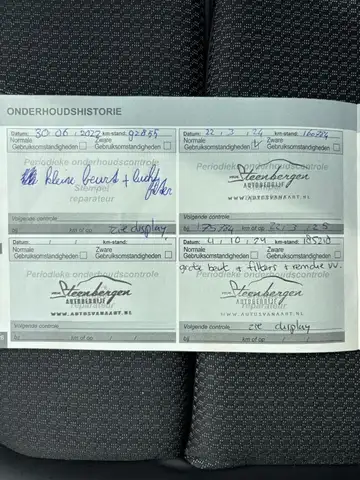 ONDERHOUDSHISTORIE
Datum: 30.06.2022 km-stand: 92855
Normale Gebruiksomstandigheden Zware Gebruiksomstandigheden
Periodieke onderhoudscontrole
kleine beurt + lucht filter
Stempel reparateur
Volgende controle
zie display
Datum: / / km-stand:
Normale Gebruiksomstandigheden Zware Gebruiksomstandigheden
Periodieke onderhoudscontrole
Steenbergen
AUTOBEDRIJF
WWW.AUTOSVANAART.NL
Volgende controle
bij km of op / /
Datum: 22.3.24 km-stand: 160784
Normale Gebruiksomstandigheden Zware Gebruiksomstandigheden
Periodieke onderhoudscontrole
Steenbergen
AUTOBEDRIJF
WWW.AUTOSVANAART.NL
Volgende controle
175784 22.3.25
Datum: 4.10.24 km-stand:
Normale Gebruiksomstandigheden Zware Gebruiksomstandigheden
grote beurt + filters + remolie vv.
Periodieke onderhoudscontrole
Steenbergen
AUTOBEDRIJF
WWW.AUTOSVANAART.NL
Volgende controle
zie display
bij km of op / /